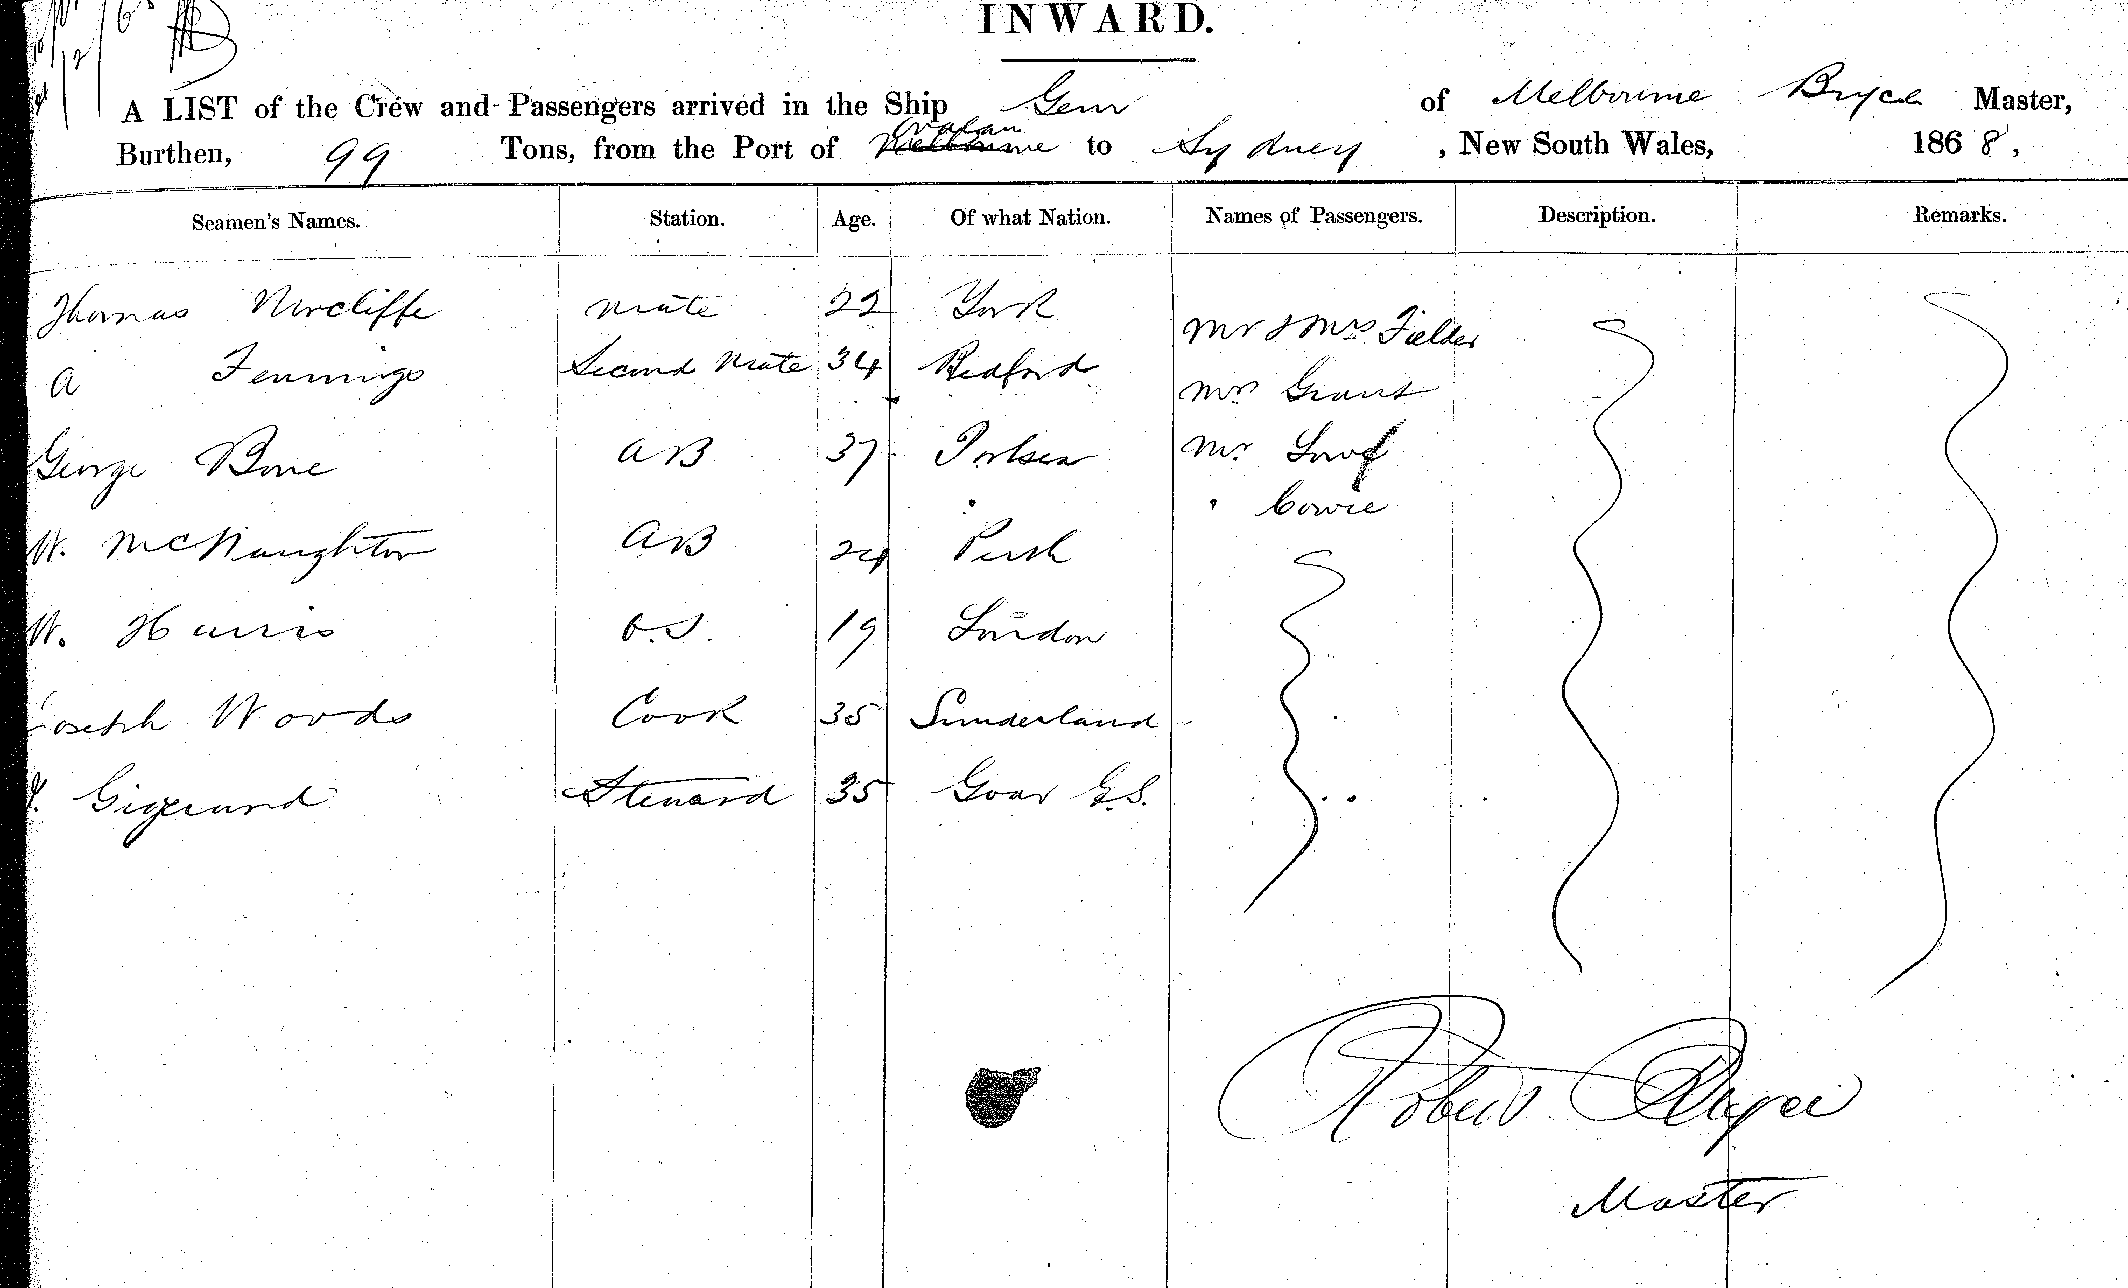 INWARD.
A LIST of the Crew and Passengers arrived in the Ship Gem of Melbourne Bryce Master,
Burthen, 99 Tons, from the Port of Melbourne to Sydney, New South Wales, 1868,
Seamen's Names. Station. Age. Of what Nation. Names of Passengers. Description. Remarks.
Thomas Norcliffe Mate 22 York Mr & Mrs Fielder
A Jennings Second Mate 34 Bedford Mrs Grant
George Bone AB 37 Portsea Mr
" Cowie
W. McNaughton AB 24 Perth
W. Harris O.S. 19 London
Joseph Woods Cook 35 Sunderland
Steward 35
Robert Bryce
Master